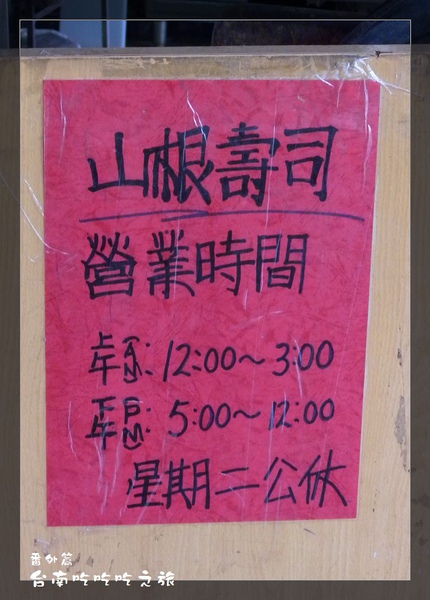 山根壽司
營業時間
上午AM: 12:00~3:00
下午PM: 5:00~12:00
星期二公休
番外篇
台南吃吃吃之旅